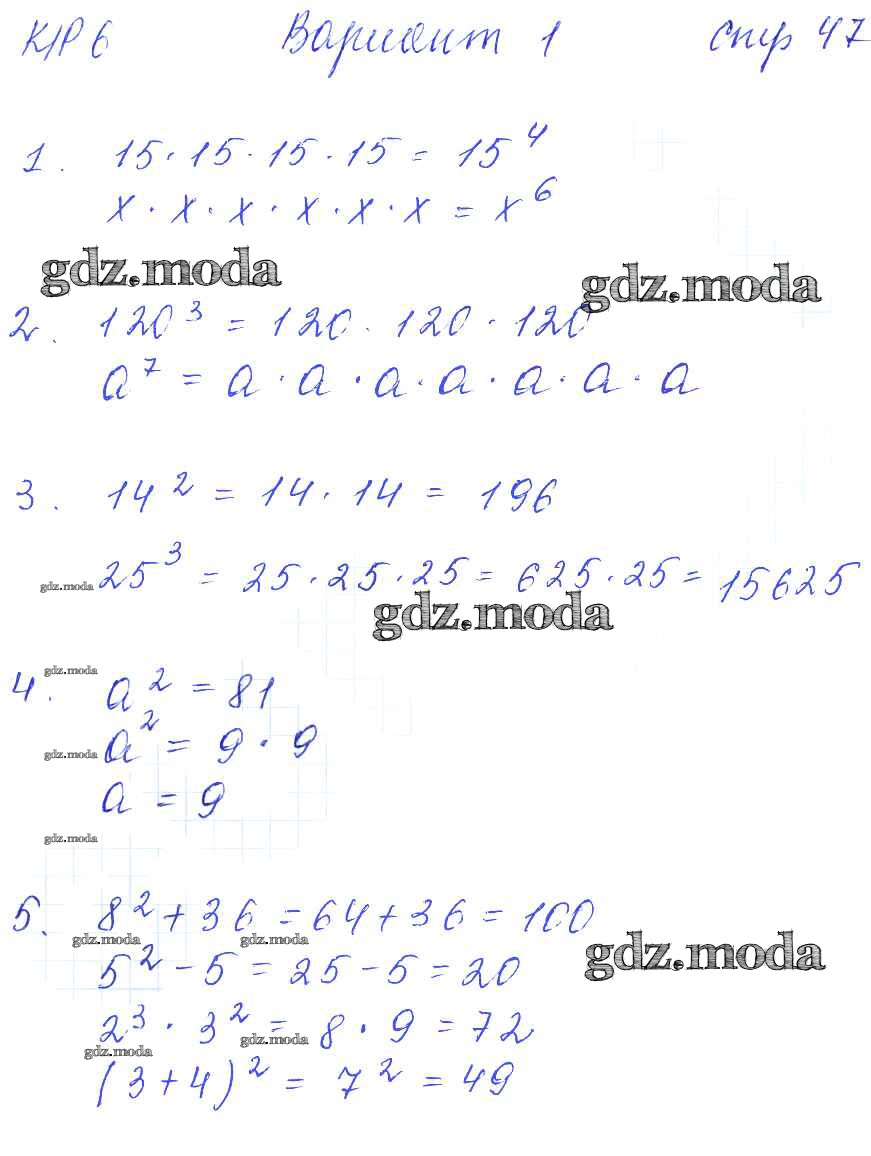 К/Р 6 Вариант 1 стр 47
1. 15 · 15 · 15 · 15 = 15⁴
x · x · x · x · x · x = x⁶
gdz.moda gdz.moda
2. 120³ = 120 · 120 · 120
a⁷ = a · a · a · a · a · a · a
3. 14² = 14 · 14 = 196
gdz.moda 25³ = 25 · 25 · 25 = 625 · 25 = 15625
gdz.moda
gdz.moda
4. a² = 81
gdz.moda a² = 9 · 9
a = 9
gdz.moda
5. 8² + 36 = 64 + 36 = 100
gdz.moda gdz.moda gdz.moda
5² - 5 = 25 - 5 = 20
2³ · 3² = 8 · 9 = 72
gdz.moda gdz.moda
(3 + 4)² = 7² = 49